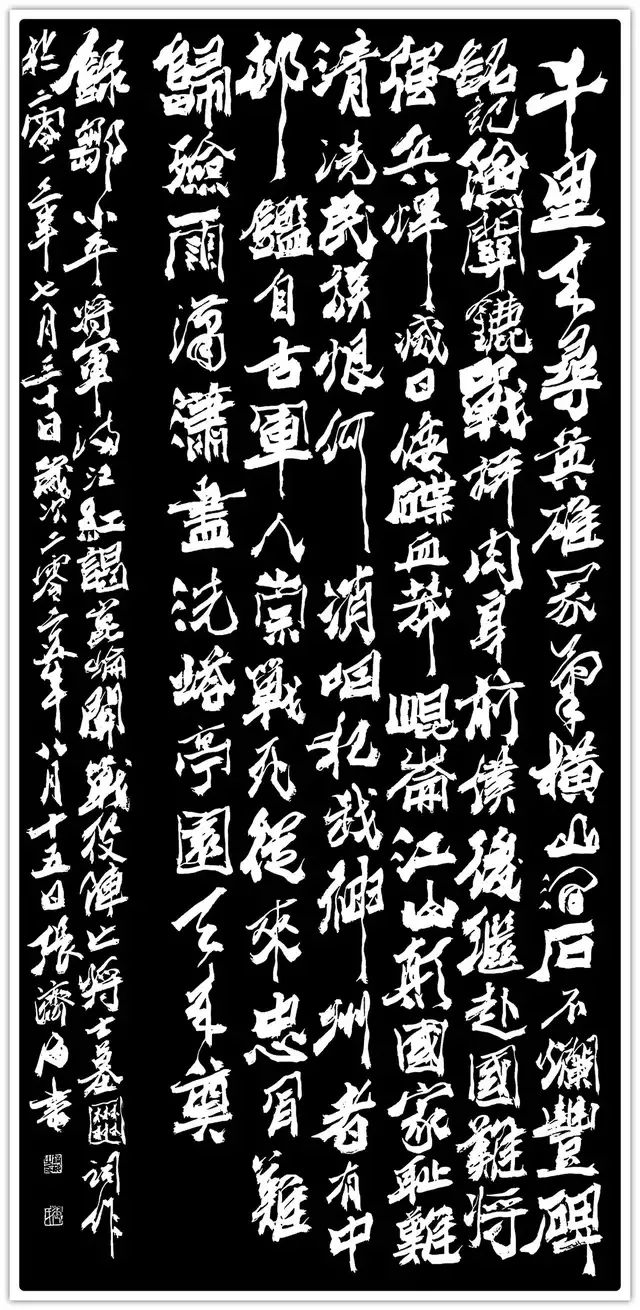 千里来尋英雄冢橫山澗石不爛豐碑
銘記險關鏖戰拼肉身前僕後繼赴國難將
强兵焊滅日倭碟血莽崐崙江山國家耻難
清洗民族恨何消咽犯我神州者有中
邨鑑自古軍人崇戰死從來忠骨難
歸殮雨瀟瀟盡洗亭園天奠
錄鄒小平將軍滿江紅謁崑崙關戰役陣亡將士墓詞作
於二零一年七月三十日歲次二零二年八月十五日張濟書